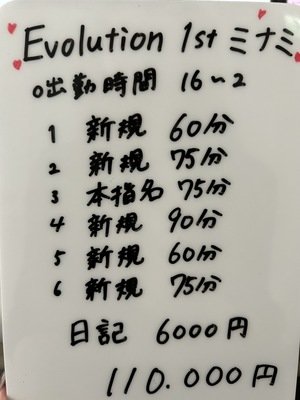 Evolution 1st ミナミ
○出勤時間 16~2
1 新規 60分
2 新規 75分
3 本指名 75分
4 新規 90分
5 新規 60分
6 新規 75分
日記 6000円
110.000円